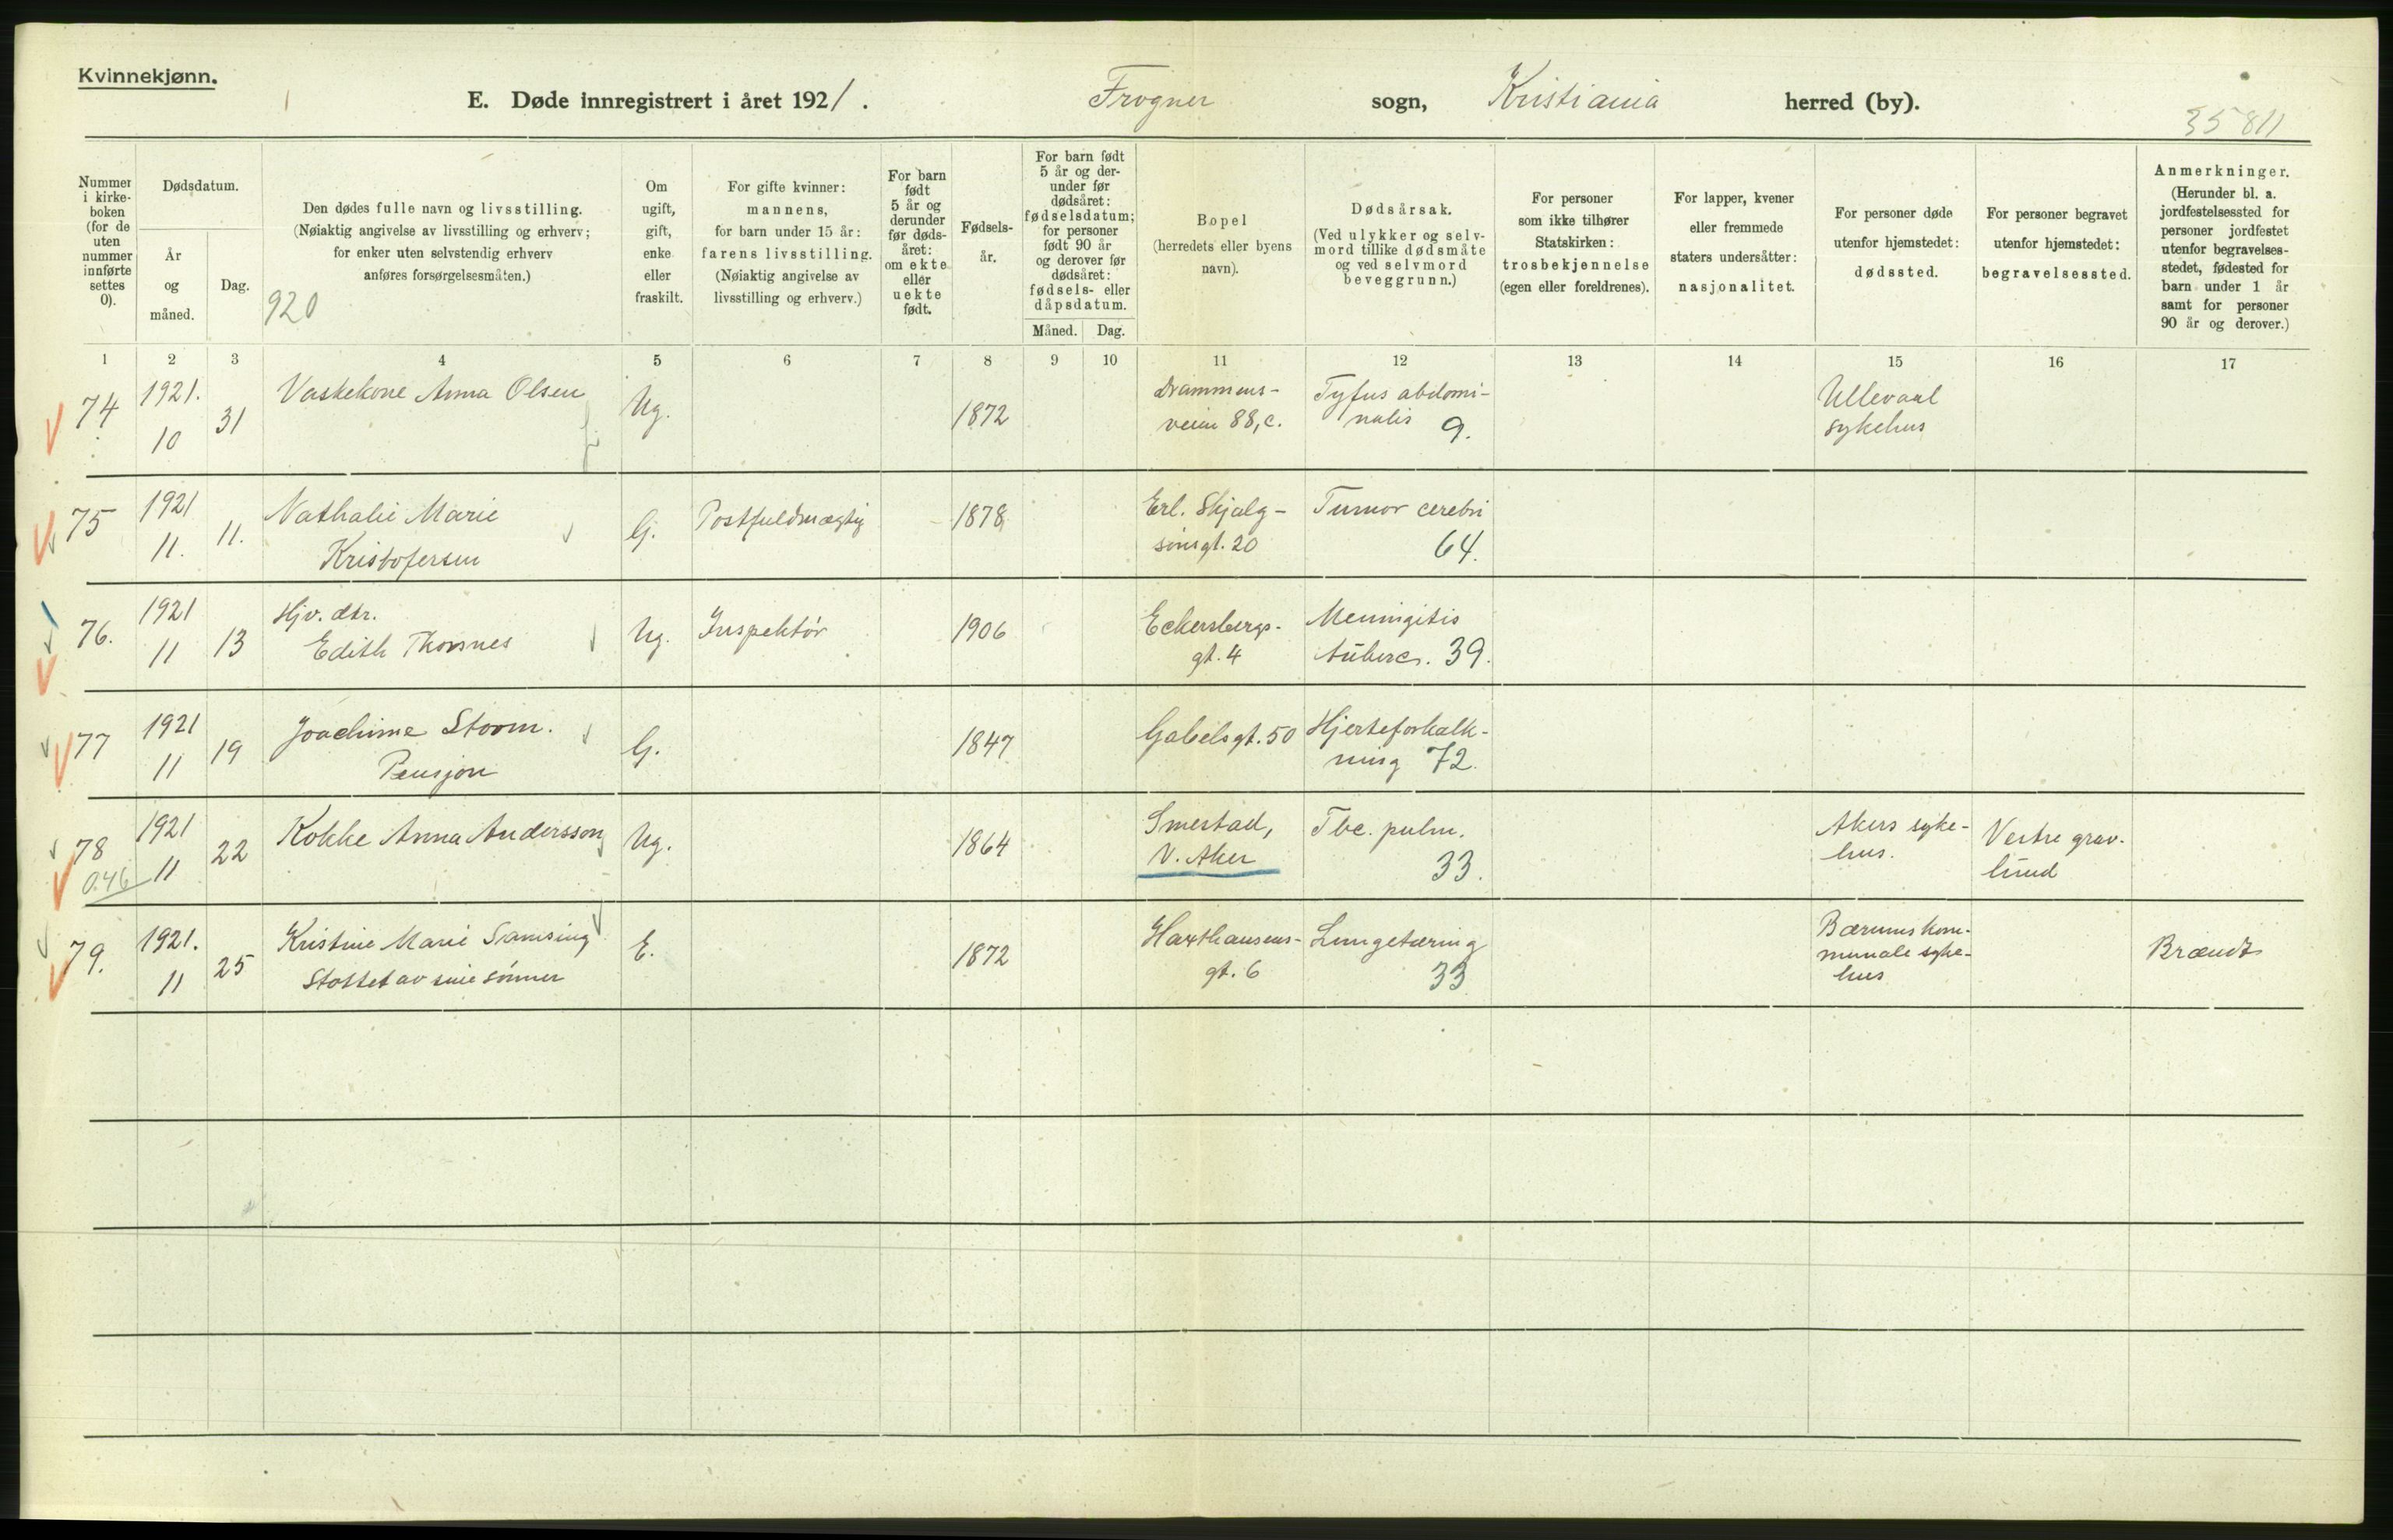 Kvinnekjønn.
E. Døde innregistrert i året 1921. Frogner sogn, Kristiania herred (by).
35811
Nummer i kirkeboken (for de uten nummer innførte settes 0).
Dødsdatum.
År og måned.
Dag.
Den dødes fulle navn og livsstilling.
(Nøiaktig angivelse av livsstilling og erhverv;
for enker uten selvstendig erhverv
anføres forsørgelsesmåten.)
920
Om ugift, gift, enke eller fraskilt.
For gifte kvinner:
mannens,
for barn under 15 år:
farens livsstilling.
(Nøiaktig angivelse av
livsstilling og erhverv.)
For barn født 5 år og derunder før dødsåret: om ekte eller uekte født.
Fødselsår.
For barn født 5 år og derunder før dødsåret: fødselsdatum; for personer født 90 år og derover før dødsåret: fødsels- eller dåpsdatum.
Måned. Dag.
Bopel
(herredets eller byens
navn).
Dødsårsak.
(Ved ulykker og selvmord tillike dødsmåte og ved selvmord beveggrunn.)
For personer
som ikke tilhører
Statskirken:
trosbekjennelse
(egen eller foreldrenes).
For lapper, kvener
eller fremmede
staters undersåtter:
nasjonalitet.
For personer døde
utenfor hjemstedet:
dødssted.
For personer begravet
utenfor hjemstedet:
begravelsessted.
Anmerkninger.
(Herunder bl. a.
jordfestelsessted for
personer jordfestet
utenfor begravelses-
stedet, fødested for
barn under 1 år
samt for personer
90 år og derover.)
1 2 3 4 5 6 7 8 9 10 11 12 13 14 15 16 17
74 1921. 10 31 Vaskekone Anna Olsen Ug. 1872 Drammens-
veien 88, c. Tyfus abdomi-
nalis 9. Ullevaal
sykehus
75 1921 11. 11. Nathalie Marie
Kristofersen G. Postfuldmægtig 1878 Erl. Skjalg-
sönsgt. 20 Tumor cerebri
64.
76. 1921 11 13 Hjv. dtr.
Edith Thorsnes Ug. Inspektör 1906 Eckersbergs-
gt. 4 Meningitis
tuberc. 39.
77 1921 11 19 Joachime Storm.
Pensjon G. 1847 Gabelsgt. 50 Hjerteforkalk-
ning 72.
78 0.46 1921 11 22 Kokke Anna Andersson Ug. 1864 Smestad,
V. Aker Tbc. pulm.
33. Akers syke-
hus. Vestre grav-
lund
79. 1921. 11 25 Kristine Marie Samsing
Støttet av sine sönner E. 1872 Haxthausens-
gt. 6 Lungetæring
33 Bærums kom-
munale syke-
hus Brændt